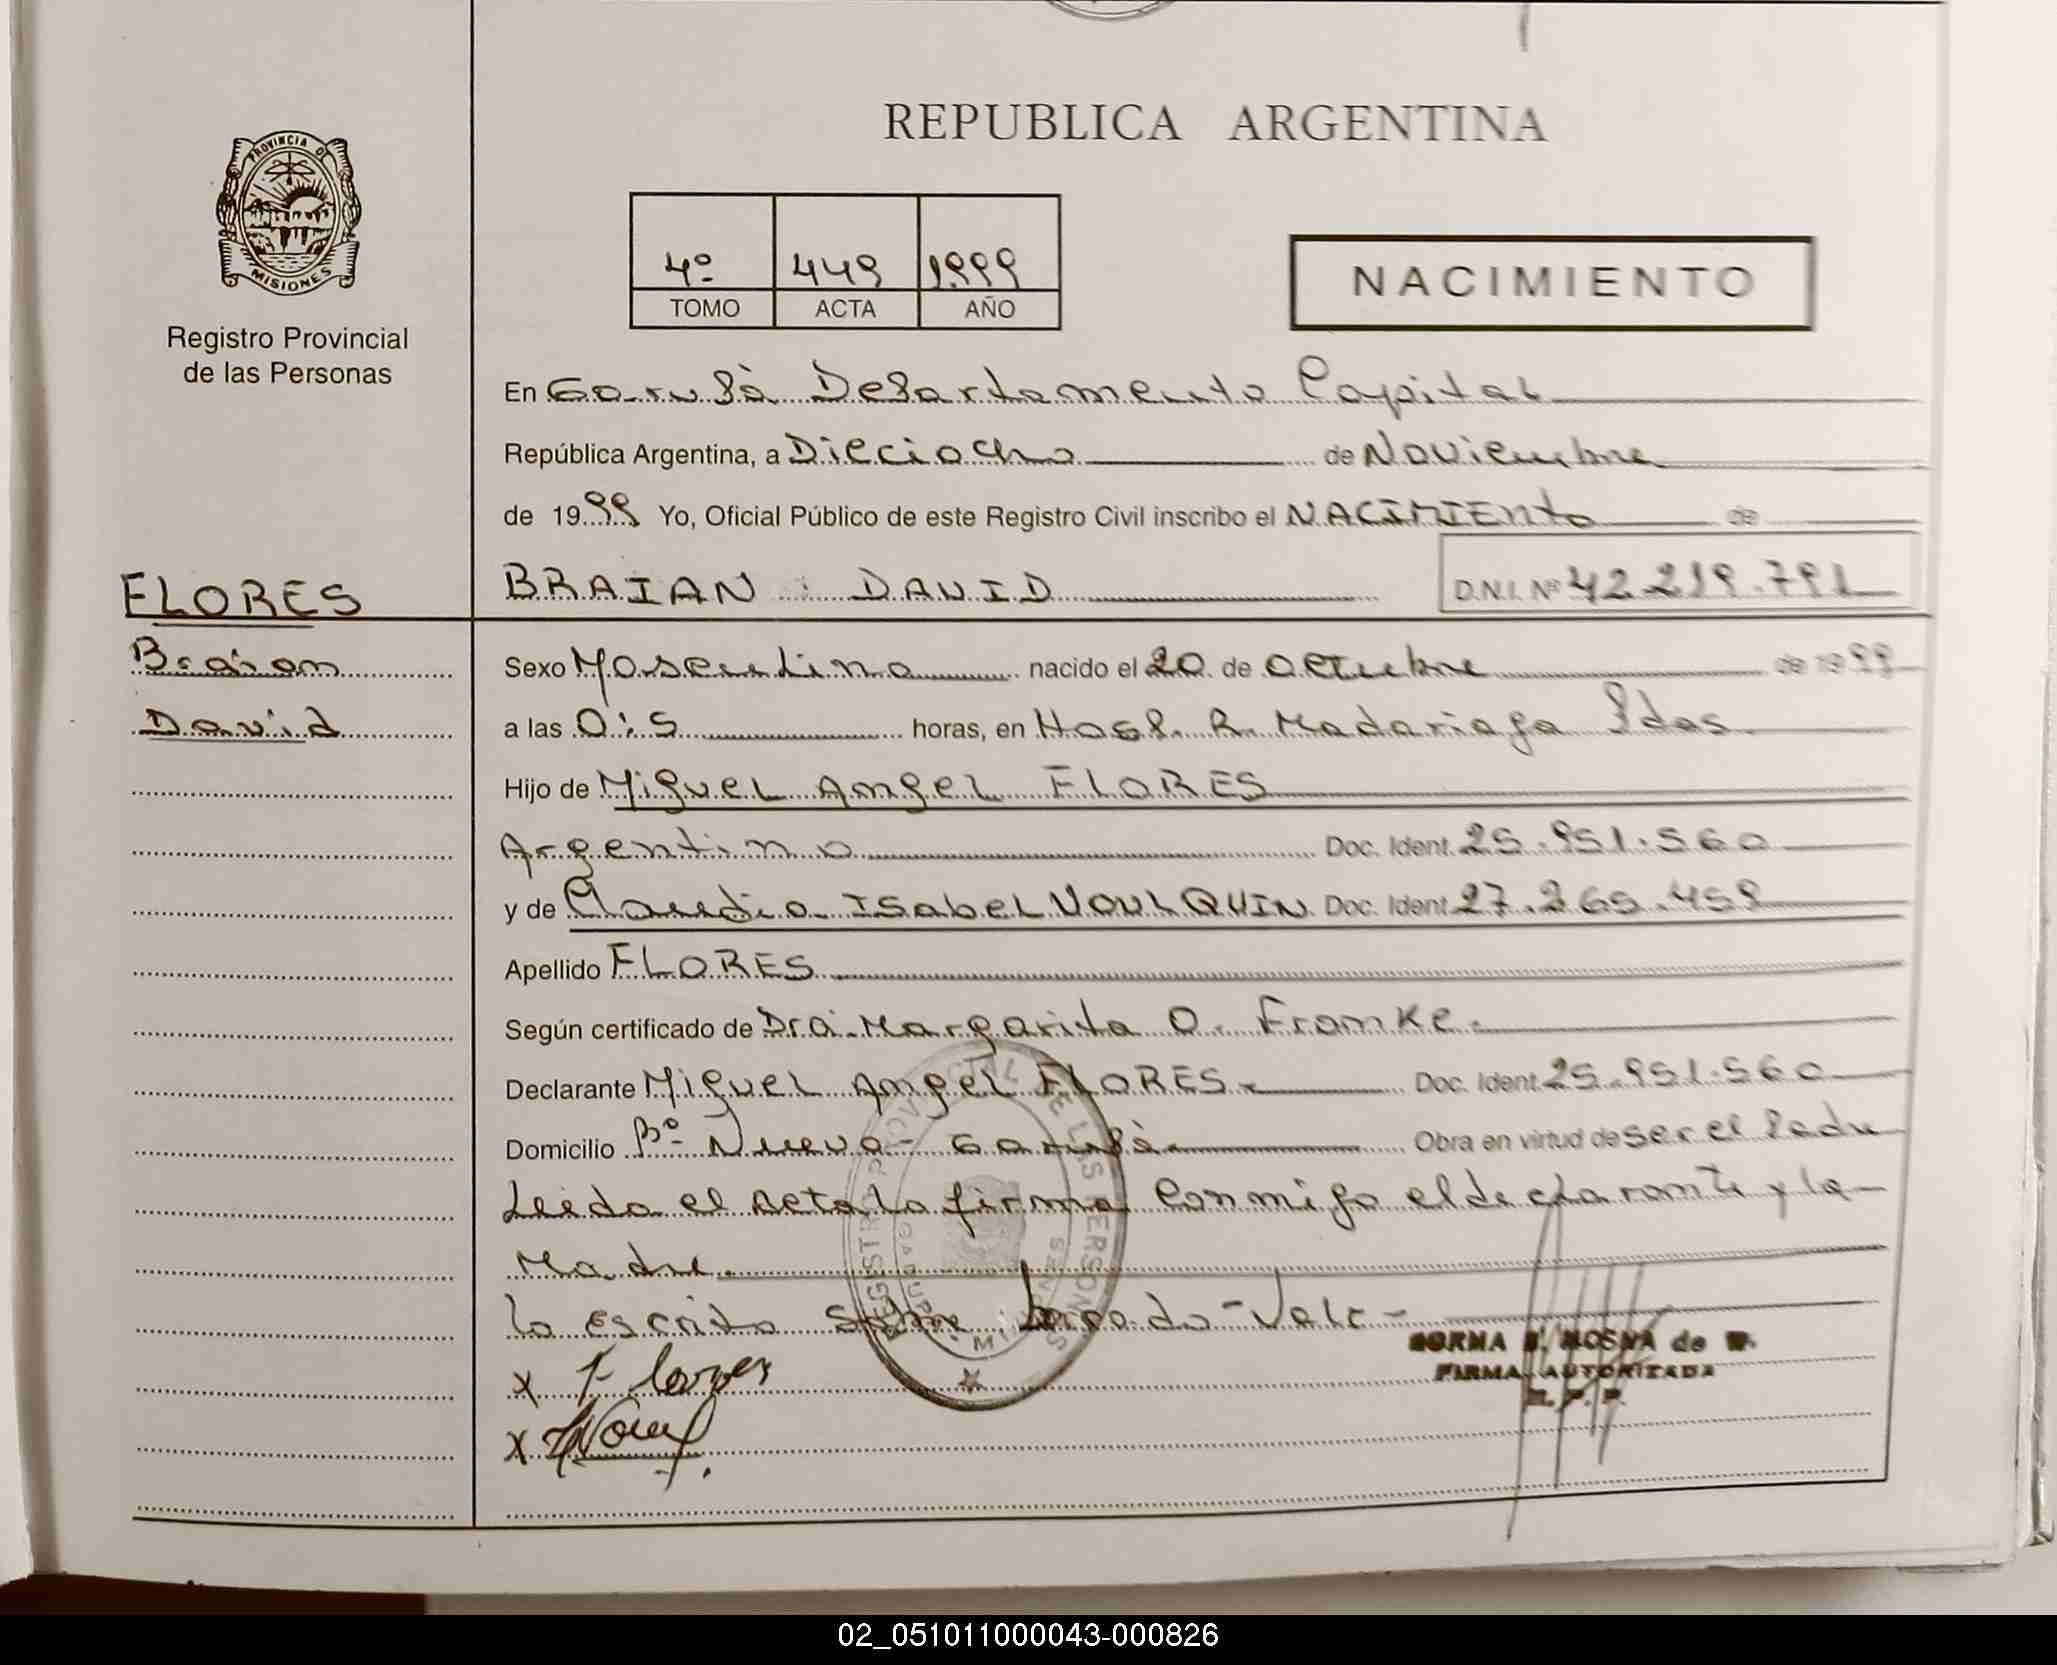 REPUBLICA ARGENTINA
PROVINCIA DE
MISIONES
Registro Provincial
de las Personas
4º 449 1999
TOMO ACTA AÑO
NACIMIENTO
En Garupá Departamento Capital
República Argentina, a Dieciocho de Noviembre
de 1999 Yo, Oficial Público de este Registro Civil inscribo el NACIMIENto de
FLORES BRAIAN DAVID D.N.I. Nº 42.219.791
Braian Sexo Masculino nacido el 20 de octubre de 1999
David a las 0:5 horas, en Hosp. R. Madariaga Pdas.
Hijo de Miguel Angel FLORES
Argentino Doc. Ident. 25.951.560
y de Claudia ISabel VOULQUIN Doc. Ident. 27.265.459
Apellido FLORES
Según certificado de Dra. Margarita O. Franke.
Declarante Miguel Angel FLORES. Doc. Ident. 25.951.560
Domicilio Bº Nuevo - Garupá Obra en virtud de ser el Padre
Leida el Acta la firma Conmigo el declarante y la
Madre.
Lo escrito sobre borrado - Vale -
x Flores
x
NORMA MOSNA de W.
FIRMA AUTORIZADA
R. P. P.
REGISTRO PROVINCIAL DE LAS PERSONAS
GARUPA MISIONES
02_051011000043-000826